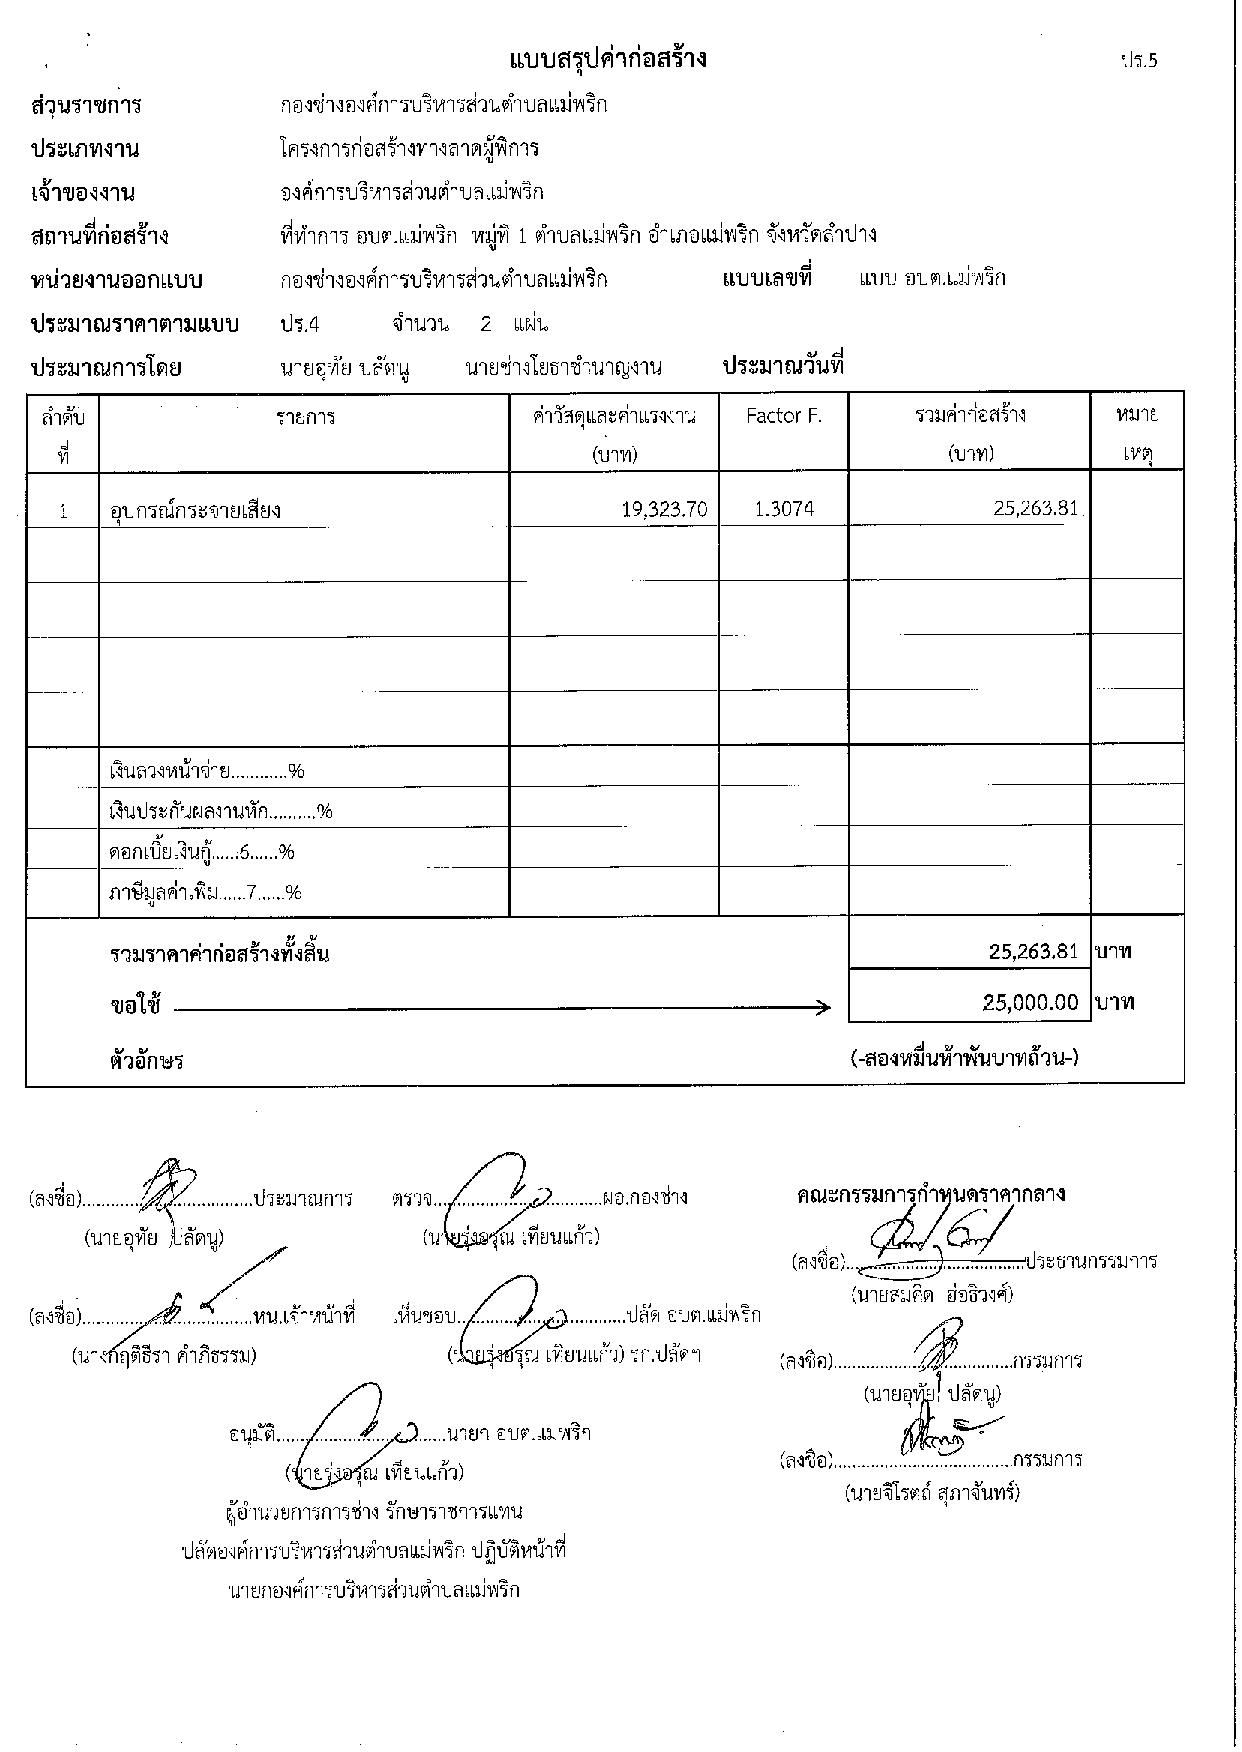 แบบสรุปค่าก่อสร้าง ปร.5
ส่วนราชการ กองช่างองค์การบริหารส่วนตำบลแม่พริก
ประเภทงาน โครงการก่อสร้างทางลาดผู้พิการ
เจ้าของงาน องค์การบริหารส่วนตำบลแม่พริก
สถานที่ก่อสร้าง ที่ทำการ อบต.แม่พริก หมู่ที่ 1 ตำบลแม่พริก อำเภอแม่พริก จังหวัดลำปาง
หน่วยงานออกแบบ กองช่างองค์การบริหารส่วนตำบลแม่พริก แบบเลขที่ แบบ อบต.แม่พริก
ประมาณราคาตามแบบ ปร.4 จำนวน 2 แผ่น
ประมาณการโดย นายอุทัย ปลัดนู นายช่างโยธาชำนาญงาน ประมาณวันที่
ลำดับ รายการ ค่าวัสดุและค่าแรงงาน Factor F. รวมค่าก่อสร้าง หมาย
ที่ (บาท) (บาท) เหตุ
1 อุปกรณ์กระจายเสียง 19,323.70 1.3074 25,263.81
เงินลวงหน้าจ่าย...........%
เงินประกันผลงานหัก..........%
ดอกเบี้ยเงินกู้.....:6......%
ภาษีมูลค่าเพิ่ม......7......%
รวมราคาค่าก่อสร้างทั้งสิ้น 25,263.81 บาท
ขอใช้ 25,000.00 บาท
ตัวอักษร (-สองหมื่นห้าพันบาทถ้วน-)
(ลงชื่อ)..............................ประมาณการ ตรวจ..............................ผอ.กองช่าง คณะกรรมการกำหนดราคากลาง
(นายอุทัย ปลัดนู) (นายรุ่งอรุณ เทียนแก้ว)
(ลงชื่อ)..............................ประธานกรรมการ
(นายสมคิด ฮ่อธิวงศ์)
(ลงชื่อ)..............................หน.เจ้าหน้าที่ เห็นชอบ..............................ปลัด อบต.แม่พริก
(นางกฤติธีรา คำภิธรรม) (นายรุ่งอรุณ เทียนแก้ว) รก.ปลัดฯ
(ลงชื่อ)..............................กรรมการ
(นายอุทัย ปลัดนู)
อนุมัติ..............................นายก อบต.แม่พริก
(ลงชื่อ)..............................กรรมการ
(นายรุ่งอรุณ เทียนแก้ว)
(นายจิโรตถ์ สุภาจันทร์)
ผู้อำนวยการการช่าง รักษาราชการแทน
ปลัดองค์การบริหารส่วนตำบลแม่พริก ปฏิบัติหน้าที่
นายกองค์การบริหารส่วนตำบลแม่พริก